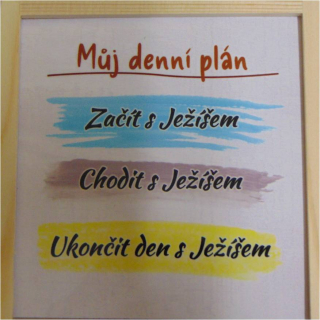 Můj denní plán
Začít s Ježíšem
Chodit s Ježíšem
Ukončit den s Ježíšem